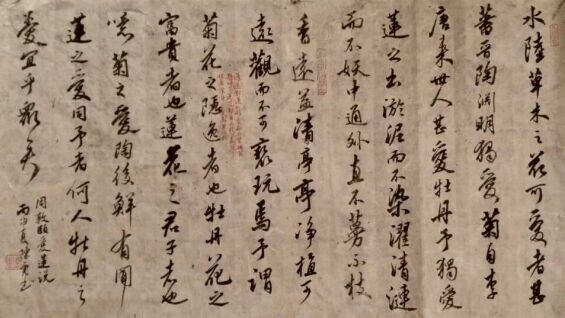 水陸草木之花可愛者甚
蕃晉陶淵明獨愛菊自李
唐来世人甚愛牡丹予獨愛
蓮之出淤泥而不染濯清漣
而不妖中通外直不蔓不枝
香遠益清亭亭净植可
遠觀而不可褻玩焉予謂
菊花之隱逸者也牡丹花之
富貴者也蓮花之君子者也
噫菊之愛陶後鮮有聞
蓮之愛同予者何人牡丹之
愛宜乎衆矣
周敦頤愛蓮說
丙申夏